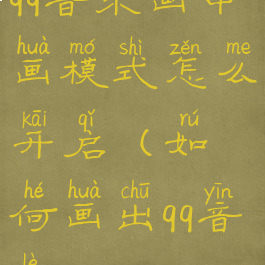 99音乐画中
huà mó shì zěn me
画模式怎么
kāi qǐ rú
开启(如
hé huà chū yīn
何画出99音
lè